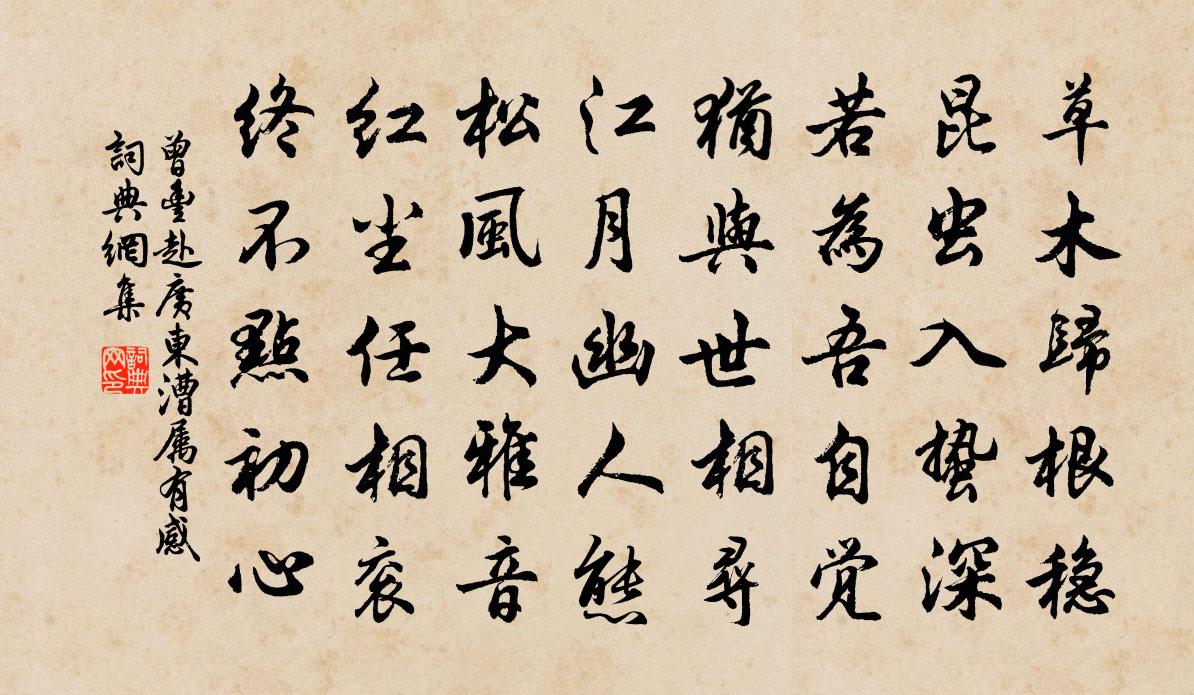 草木歸根稳
昆虫入蟄深
若為吾自觉
猶與世相尋
江月幽人態
松風大雅音
紅尘任相衮
終不點初心
曾豐赴廣東漕属有感
詞典網集
詞典网印